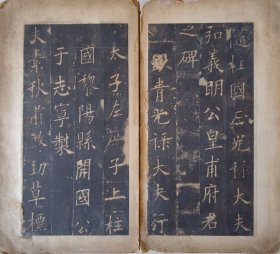 隨柱國左光祿大夫
弘義明公皇甫府君
之碑
青光祿大夫行
太子左庶子上柱
國黎陽縣開國公
于志寧製
夫素秋肅勁草標